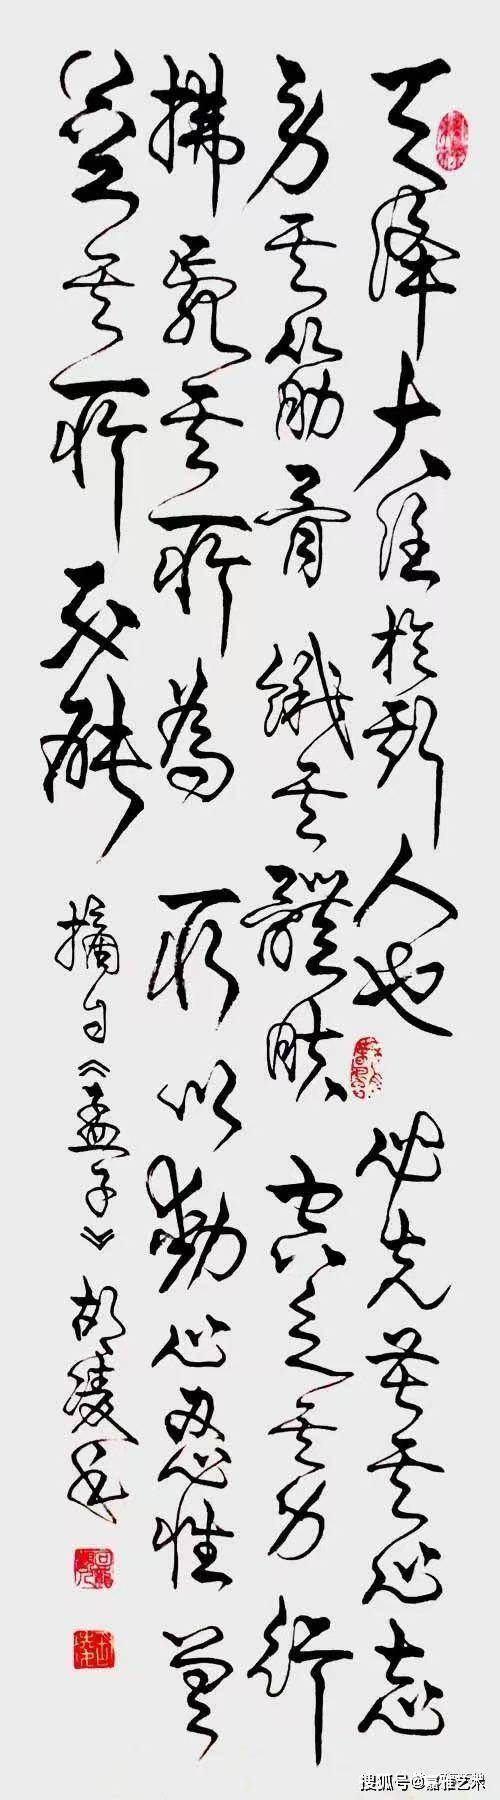 天降大任於斯人也 必先苦其心志
劳其筋骨 餓其體肤 空乏其身 行
拂亂其所為 所以動心忍性 曾
益其所不能 摘自《孟子》 胡
搜狐号@嘉雅艺术